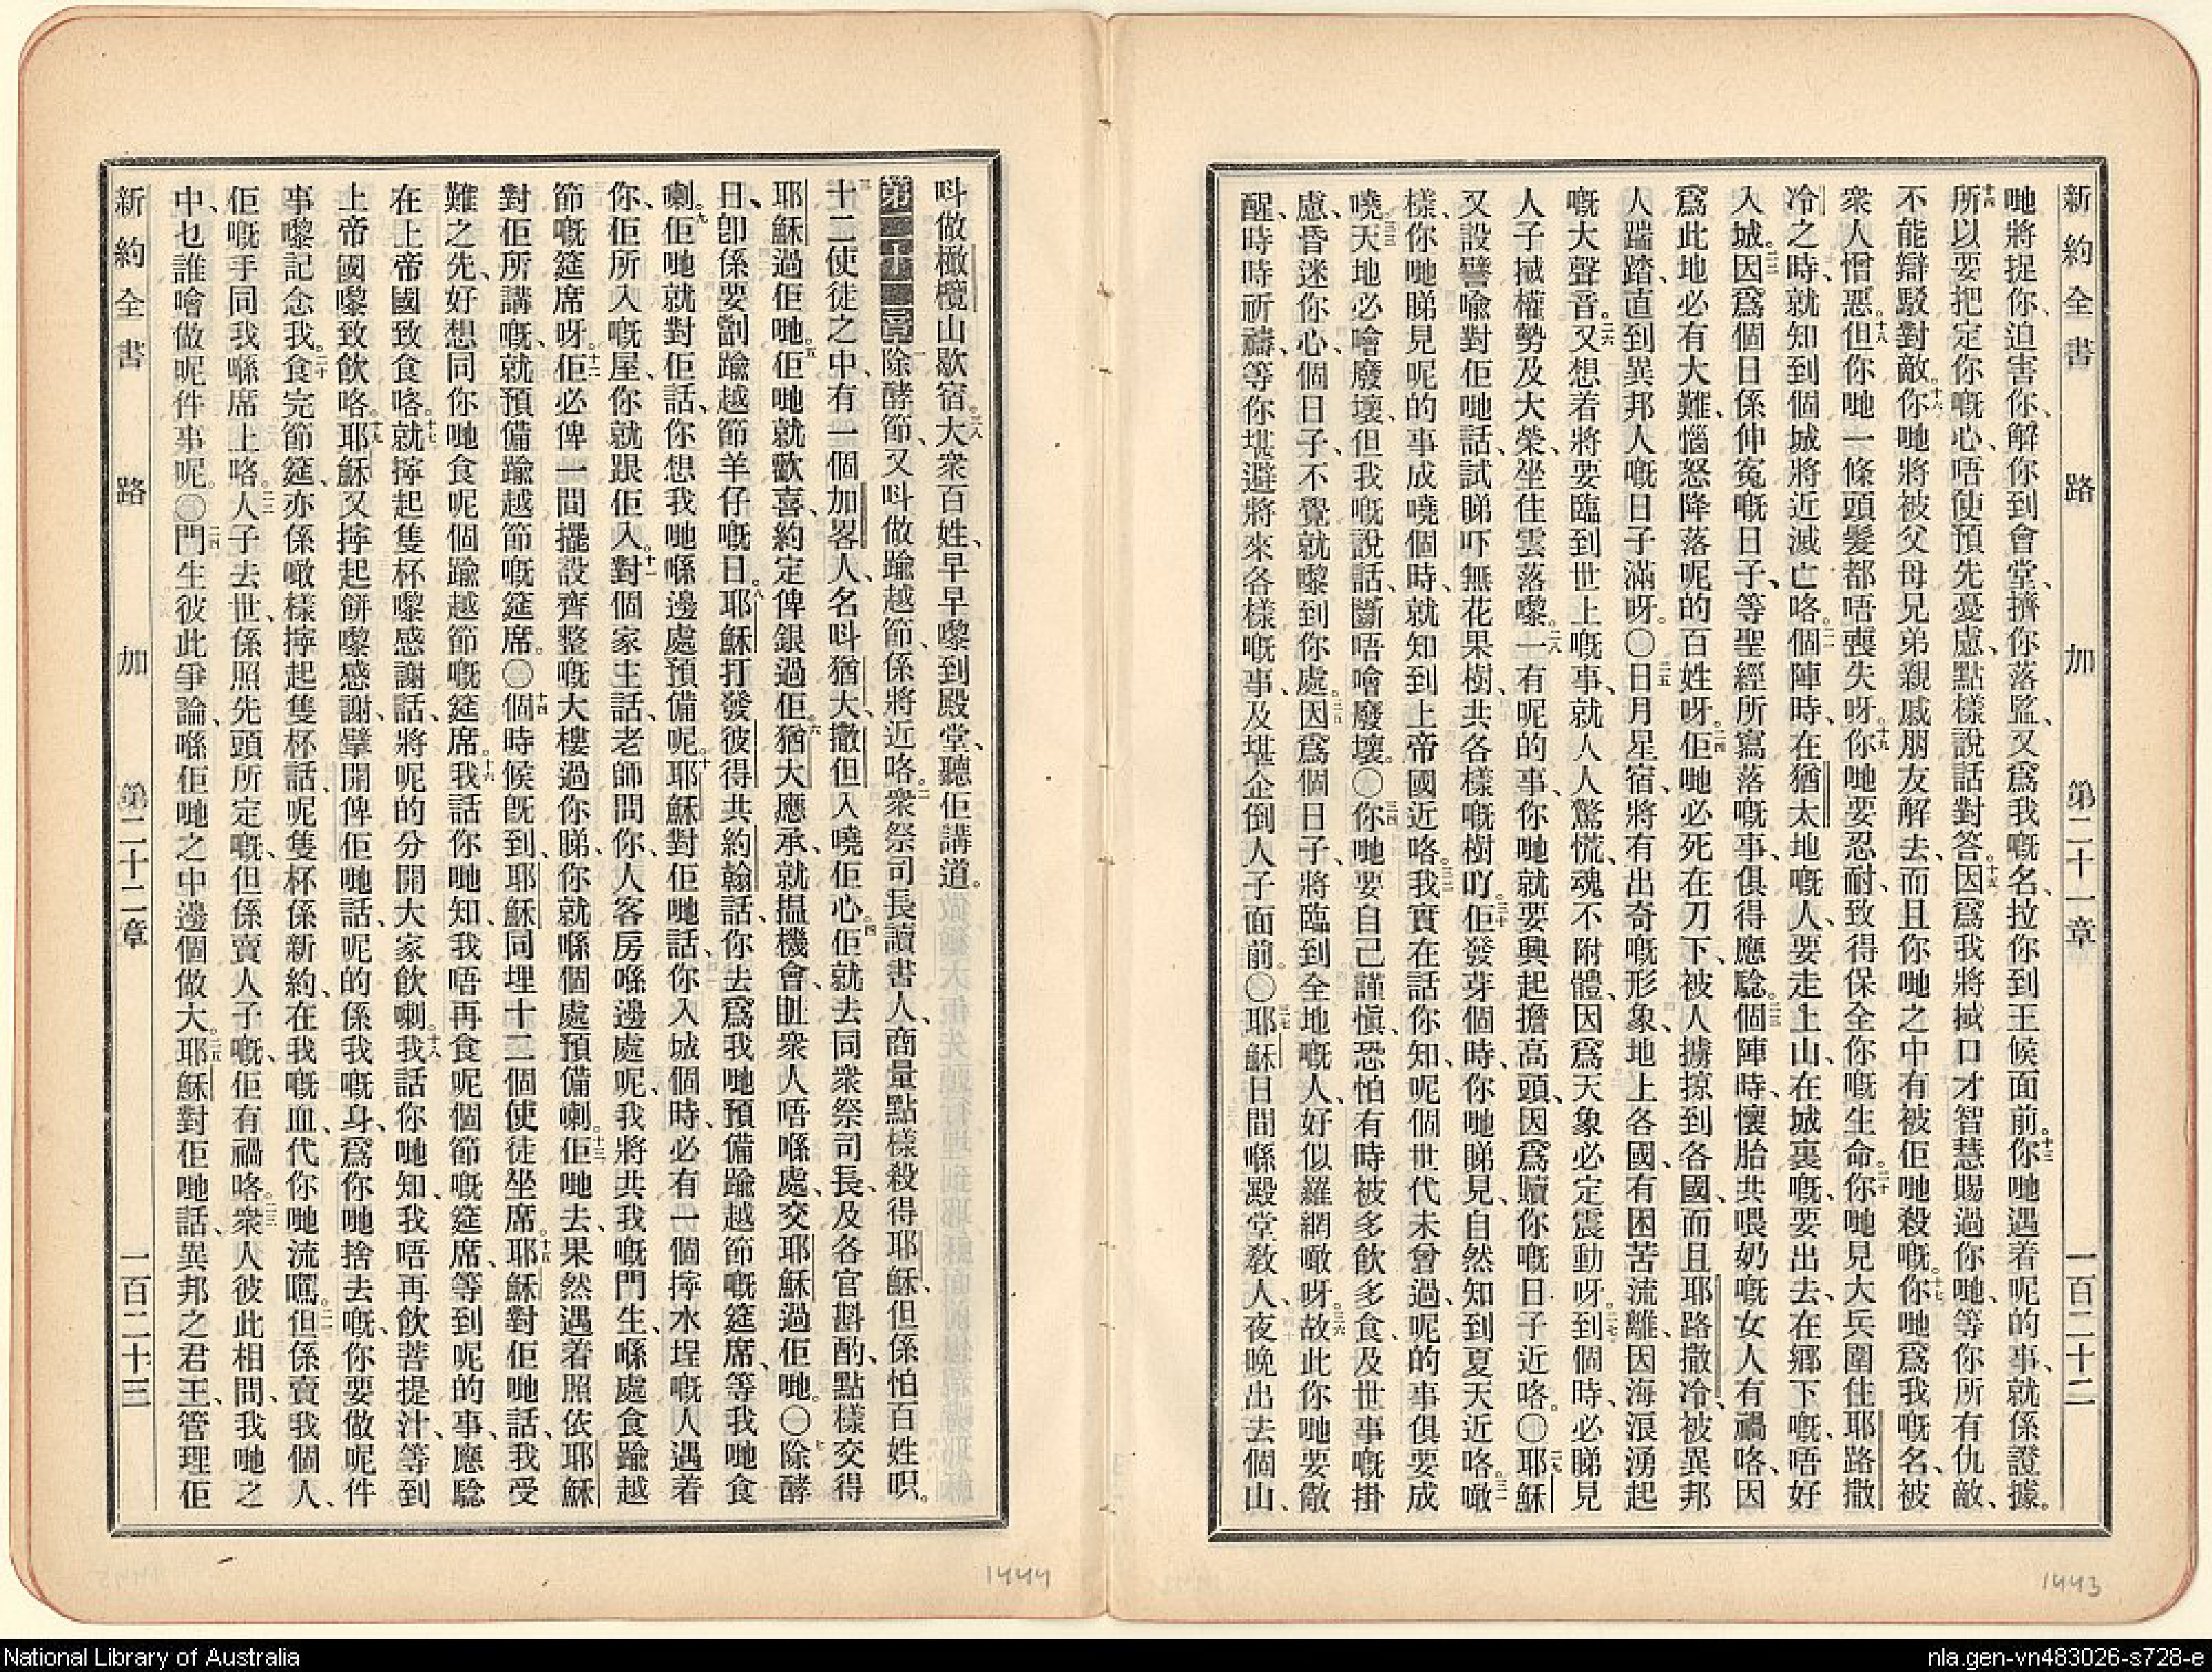 新約全書 路加 第二十一章 一百二十二
哋將捉你、迫害你、解你到會堂、擠你落監、又爲我嘅名、拉你到王候面前。十三你哋遇着呢的事、就係證據。
十四所以要把定你嘅心、唔使預先憂慮、點樣說話對答。十五因爲我將掝口才智慧賜過你哋、等你所有仇敵、
不能辯駁對敵。十六你哋將被父母兄弟親戚朋友解去、而且你哋之中有被佢哋殺嘅。十七你哋爲我嘅名、被
衆人憎惡。十八但你哋一條頭髮都唔喪失呀。十九你哋要忍耐、致得保全你嘅生命。二十你哋見大兵圍住耶路撒
冷之時、就知到個城將近滅亡咯。二一個陣時、在猶太地嘅人、要走上山、在城裏嘅、要出去、在鄉下嘅、唔好
入城。二二因爲個日係伸冤嘅日子、等聖經所寫落嘅事、俱得應騐。二三個陣時、懷胎共喂奶嘅女人有禍咯、因
爲此地必有大難、惱怒降落呢的百姓呀。二四佢哋必死在刀下、被人擄掠到各國、而且耶路撒冷、被異邦
人踹踏、直到異邦人嘅日子滿呀。〇二五日月星宿、將有出奇嘅形象、地上各國、有困苦流離、因海浪湧起
嘅大聲音。二六又想着將要臨到世上嘅事、就人人驚慌、魂不附體、因爲天象必定震動呀。二七到個時、必睇見
人子掝權勢及大榮、坐住雲落嚟。二八一有呢的事、你哋就要興起擔高頭、因爲贖你嘅日子近咯。〇二九耶穌
又設譬喻對佢哋話、試睇吓無花果樹、共各樣嘅樹吖。三十佢發芽個時、你哋睇見、自然知到夏天近咯。三一噉
樣、你哋睇見呢的事成嘵個時、就知到上帝國近咯。三二我實在話你知、呢個世代未曾過、呢的事俱要成
嘵。三三天地必噲廢壞、但我嘅說話、斷唔噲廢壞。〇三四你哋要自己謹愼、恐怕有時被多飲多食、及世事嘅掛
慮、昏迷你心、個日子、不覺就嚟到你處。三五因爲個日子、將臨到全地嘅人、好似羅網噉呀。三六故此你哋要儆
醒、時時祈禱、等你堪避將來各樣嘅事、及堪企倒人子面前。〇三七耶穌日間喺殿堂敎人、夜晚出去個山、
叫做橄欖山歇宿。三八大衆百姓、早早嚟到殿堂、聽佢講道。
第二十二章 一除酵節、又叫做踰越節、係將近咯。二衆祭司長讀書人、商量點樣殺得耶穌、但係怕百姓呮。
三十二使徒之中、有一個加畧人、名叫猶大、撒但入嘵佢心。四佢就去同衆祭司長、及各官斟酌、點樣交得
耶穌過佢哋。五佢哋就歡喜、約定俾銀過佢。六猶大應承、就揾機會、趾衆人唔喺處、交耶穌過佢哋。〇七除酵
日、卽係要劏踰越節羊仔嘅日。八耶穌打發彼得共約翰話、你去爲我哋預備踰越節嘅筵席、等我哋食
喇。九佢哋就對佢話、你想我哋喺邊處預備呢。十耶穌對佢哋話、你入城個時、必有一個擰水埕嘅人遇着
你、佢所入嘅屋、你就跟佢入。十一對個家主話、老師問你、人客房喺邊處呢、我將共我嘅門生、喺處食踰越
節嘅筵席呀。十二佢必俾一間擺設齊整嘅大樓過你睇、你就喺個處預備喇。十三佢哋去、果然遇着照依耶穌
對佢所講嘅、就預備踰越節嘅筵席。〇十四個時候旣到、耶穌同埋十二個使徒坐席。十五耶穌對佢哋話、我受
難之先、好想同你哋食呢個踰越節嘅筵席。十六我話你哋知、我唔再食呢個節嘅筵席、等到呢的事、應騐
在上帝國致食咯。十七就擰起隻杯嚟感謝話、將呢的分開大家飲喇。十八我話你哋知、我唔再飲菩提汁、等到
上帝國嚟致飲咯。十九耶穌又擰起餅嚟感謝、擘開俾佢哋話、呢的係我嘅身、爲你哋捨去嘅、你要做呢件
事嚟記念我。二十食完節筵、亦係噉樣擰起隻杯話、呢隻杯係新約、在我嘅血、代你哋流嘅。二一但係賣我個人、
佢嘅手同我喺席上咯。二二人子去世、係照先頭所定嘅、但係賣人子嘅、佢有禍咯。二三衆人彼此相問、我哋之
中、乜誰噲做呢件事呢。〇二四門生彼此爭論、喺佢哋之中邊個做大。二五耶穌對佢哋話、異邦之君王、管理佢
新約全書 路加 第二十二章 一百二十三
1444
1443
National Library of Australia
nla.gen-vn483026-s728-e